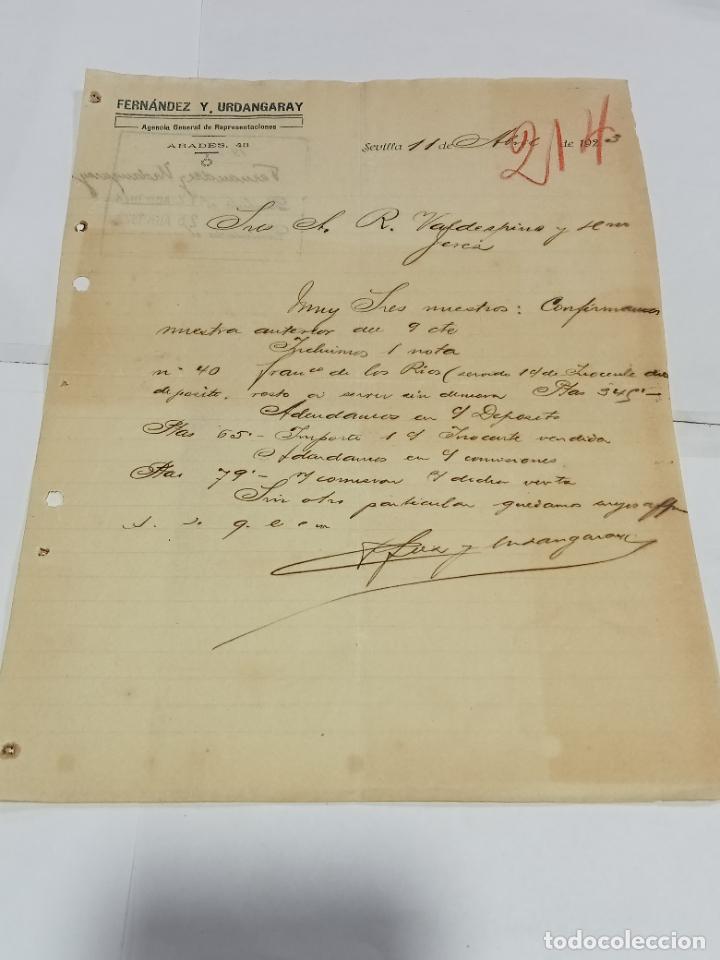 FERNÁNDEZ Y URDANGARAY
Agencia General de Representaciones
ABADES, 48
Sevilla 11 de Abril de 1923
21 4
Sres A. R. Valdespino y Hno
Jerez
Muy Sres nuestros: Confirmamos
nuestra anterior del 9 cte
Incluimos 1 nota
nº 40 Franco de los Rios (servado 1/4 de Inocente
deposito, resto a servir sin demora Ptas 345'-
Adeudamos en s/ Deposito
Ptas 65'- Importe 1 s/ Inocente vendida
Adeudamos en s/ comisiones
Ptas 79'- n/ comision s/ dicha venta
Sin otro particular quedamos suyos affmos
s. s. q. e. s. m
Fdez y Urdangaray
todocoleccion
todocoleccion.net